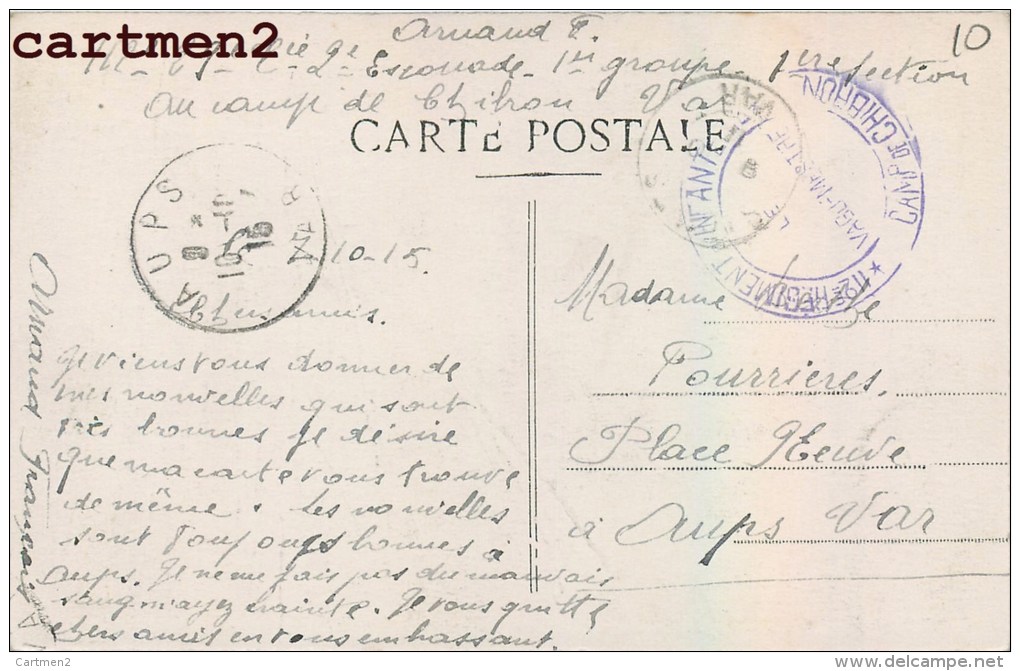 cartmen2
10
Arnaud F.
112e 29e Cie 2e Escouade - 1er groupe - 1re section
au camp de Chibron Var
CARTE POSTALE
AUPS
VAR
CAMP DE CHIBRON
LE VAGUEMESTRE
★ 112e REGIMENT D'INFANTERIE
10-15
Chers amis.
Je viens vous donner de
mes nouvelles qui sont
très bonnes je désire
que ma carte vous trouve
de même. Les nouvelles
sont toujours bonnes à
Aups. Je ne me fais pas du mauvais
sang n'ayez crainte. Je vous quitte
chers amis en vous embrassant.
Arnaud Français
Madame
Pourrieres,
Place Neuve
à Aups Var
Cartmen2
www.delcampe.net